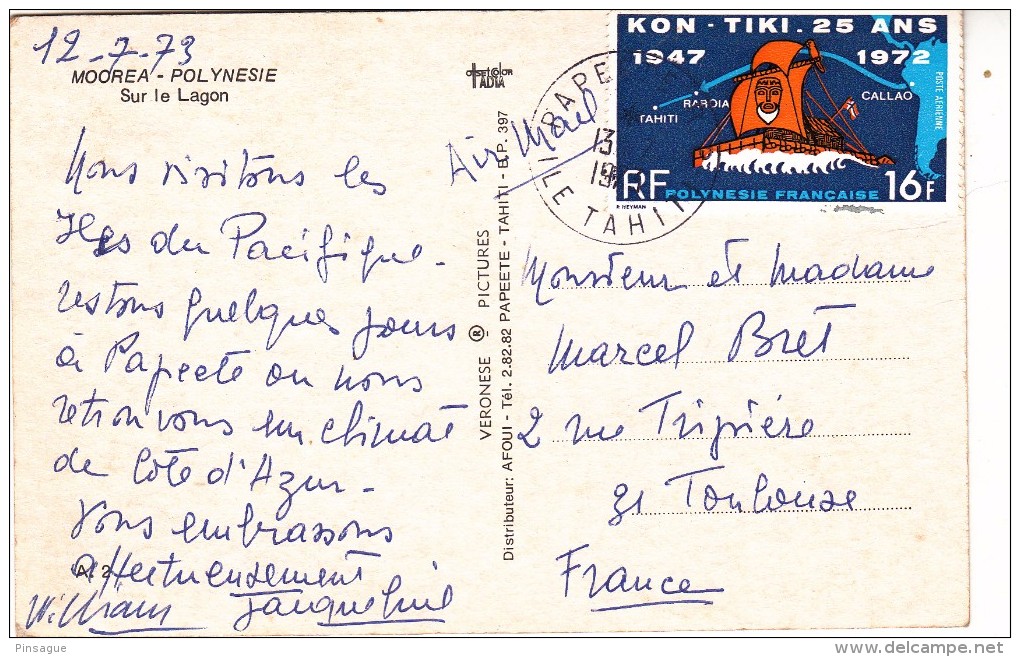 12-7-73
MOOREA - POLYNESIE
Sur le Lagon
Nous visitons les
Iles du Pacifique.
restons quelques jours
à Papeete ou nous
retrouvons un climat
de Côte d'Azur.
Vous embrassons
affectueusement
William Jacqueline
A. 2
Air Mail
OFFSET COLOR
TADIA
VERONESE ® PICTURES
Distributeur: AFOUI - Tél. 2.82.82 PAPEETE - TAHITI - B.P. 397
KON - TIKI. 25 ANS
1947 1972
TAHITI RAROIA CALLAO
POSTE AERIENNE
RF POLYNESIE FRANÇAISE 16F
P. HEYMAN
PAPE
13
19
ILE TAHITI
Monsieur et Madame
Marcel Bret
2 rue Tripière
31 Toulouse
France
Pinsague
delcampe.net